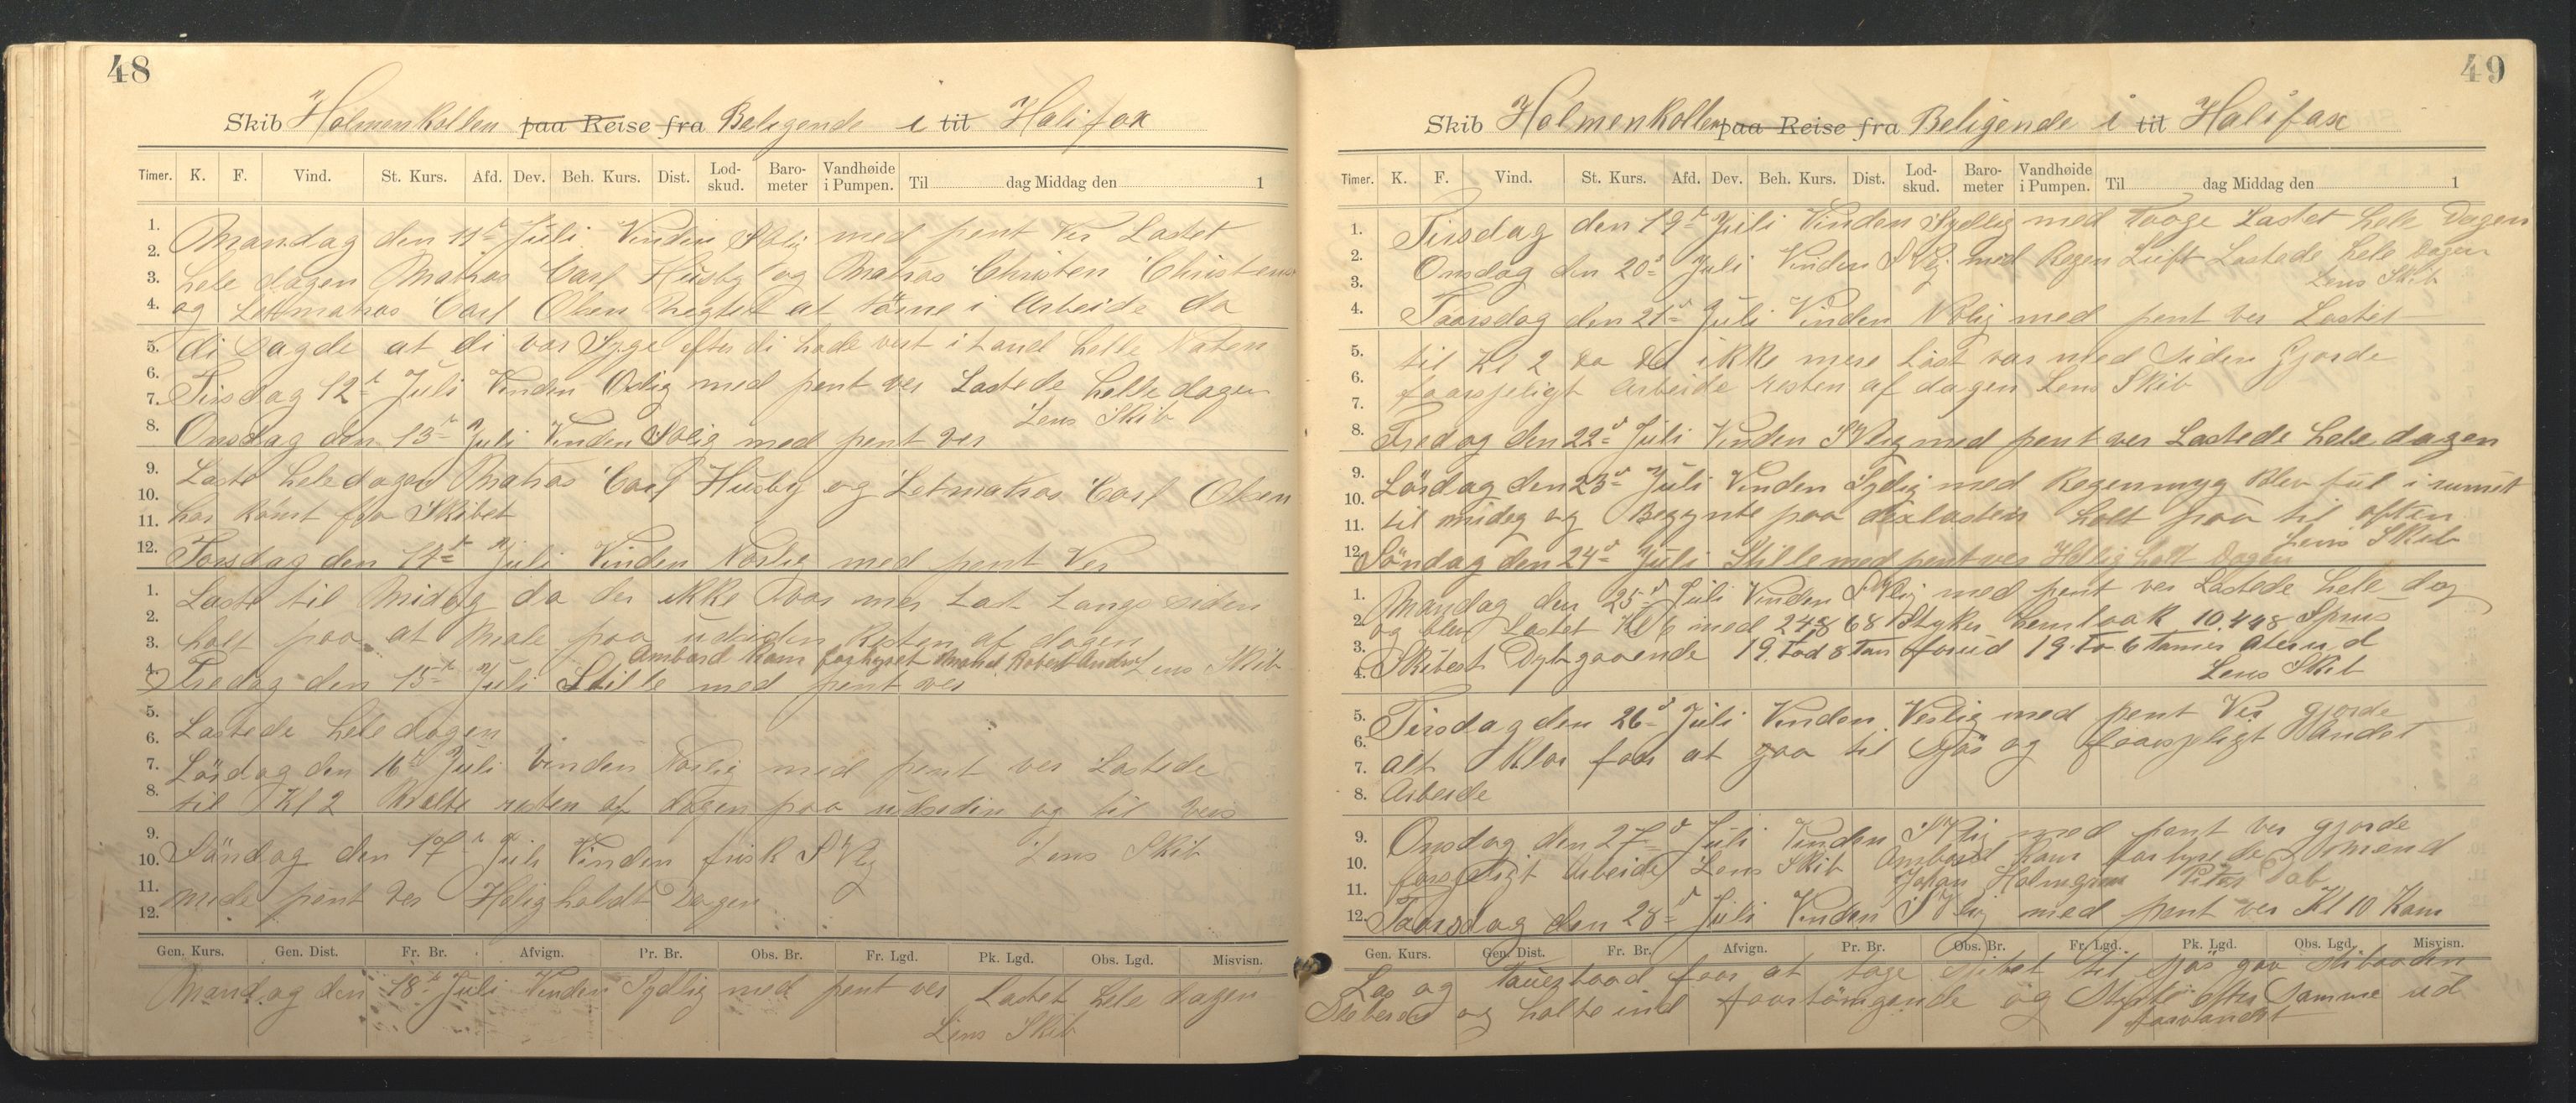 48
Skib Holmenkollen paa Reise fra Beligende i til Halifax
Timer. K. F. Vind. St. Kurs. Afd. Dev. Beh. Kurs. Dist. Lod-skud. Baro-meter Vandhøide i Pumpen. Til dag Middag den 1
1.
2.
3.
4.
Mandag den 11te Juli Vinden med pent Ver Lastet
hele dagen Matros Carl Husby og Matros Christen Christens
og Letmatros Carl Olsen Negtet at törne i Arbeide da
5.
6.
7.
8.
di sagde at di var Syge efter di hade vert i Land helle Naten
Tirsdag 12te Juli Vinden Oslig med pent ver Lastede helle dagen
Lens Skib
Onsdag den 13te Juli Vinden med pent ver
9.
10.
11.
12.
Laste hele dagen Matros Carl Husby og Letmatros Carl Olsen
har römt fra Skibet
Torsdag den 14te Juli Vinden Norlig med pent Ver
1.
2.
3.
4.
Laste til Midag da der ikke var mer Last Langs siden
holt paa at Male paa udsiden Resten af dagen
Ambord Kom Robert Lens Skib
Fredag den 15te Juli Stille med pent ver
5.
6.
7.
8.
Lastede hele dagen
Lördag den 16de Juli Vinden Norlig med pent ver Lastede
til Kl 2 Malte resten af dagen paa udsedin og til vers
9.
10.
11.
12.
Söndag den 17te Juli Vinden frisk SVlig Lens Skib
mede pent ver Helig holdt Dagen
Gen. Kurs. Gen. Dist. Fr. Br. Afvign. Pr. Br. Obs. Br. Fr. Lgd. Pk. Lgd. Obs. Lgd. Misvisn.
Mandag den 18te Juli Vinden Sydlig med pent ver Lastet hele dagen
Lens Skib
49
Skib Holmenkollen paa Reise fra Beligende i til Halifax
Timer. K. F. Vind. St. Kurs. Afd. Dev. Beh. Kurs. Dist. Lod-skud. Baro-meter Vandhøide i Pumpen. Til dag Middag den 1
1.
2.
3.
4.
Tirsdag den 19de Juli Vinden Sydlig med Taage Lastet hele Dagen
Onsdag den 20de Juli Vinden SVlig med Regen Luft Lastede hele Dagen
Lens Skib
Taarsdag den 21de Juli Vinden Nolig med pent ver Lastet
5.
6.
7.
8.
til Kl 2 da der ikke mere Last var ved siden Gjorde
faarsjeligt Arbeide resten af dagen Lens Skib
Fredag den 22de Juli Vinden SVlig med pent ver Lastede hele dagen
9.
10.
11.
12.
Lördag den 23de Juli Vinden Sydlig med Regenmyg Blev ful i rumet
til midag og Begynte paa dexlasten holt paa til aften
Lens Skib
Söndag den 24de Juli Stille med pent ver Helig holt Dagen
1.
2.
3.
4.
Mandag den 25de Juli Vinden SVlig med pent ver Lastede hele dag
og blev Lastet Kl 6 med 24868 Styker hemlaak 10.448 Sprus
Skibest Dybgaaende 19. fod 8 Tom forud 19. fo 6 tomer aterud
Lens Skib
5.
6.
7.
8.
Tirsdag den 26de Juli Vinden Veslig med pent Ver gjorde
alt Klar faar at gaa til Sjös og faarsjeligt Andet
Arbeide
9.
10.
11.
12.
Onsdag den 27de Juli Vinden SVlig med pent ver gjorde
farsjeligt Arbeide Lens Skib Ambord Kom forhyrede 2 mend
Johan Holmgren Peter
Taarsdag den 28de Juli Vinden SVlig med pent ver Kl 10 Kom
Gen. Kurs. Gen. Dist. Fr. Br. Afvign. Pr. Br. Obs. Br. Fr. Lgd. Pk. Lgd. Obs. Lgd. Misvisn.
Los og Tauerbaad faar at tage Skibet til sjös
og halte ind faartöiningende og Slepte efter Samme ud